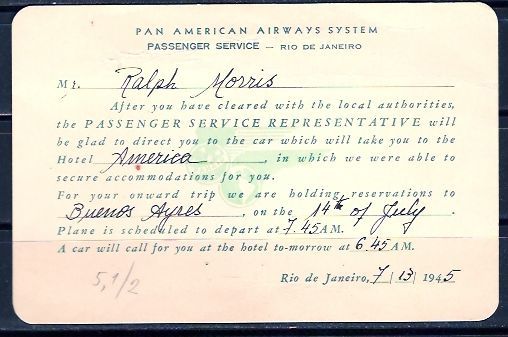 PAN AMERICAN AIRWAYS SYSTEM
PASSENGER SERVICE — RIO DE JANEIRO
Mr. Ralph Morris
After you have cleared with the local authorities,
the PASSENGER SERVICE REPRESENTATIVE will
be glad to direct you to the car which will take you to the
Hotel America, in which we were able to
secure accommodations for you.
For your onward trip we are holding reservations to
Buenos Ayres, on the 14th of July.
Plane is scheduled to depart at 7.45 AM.
A car will call for you at the hotel to-morrow at 6.45 AM.
Rio de Janeiro, 7/13/1945
5,1/2